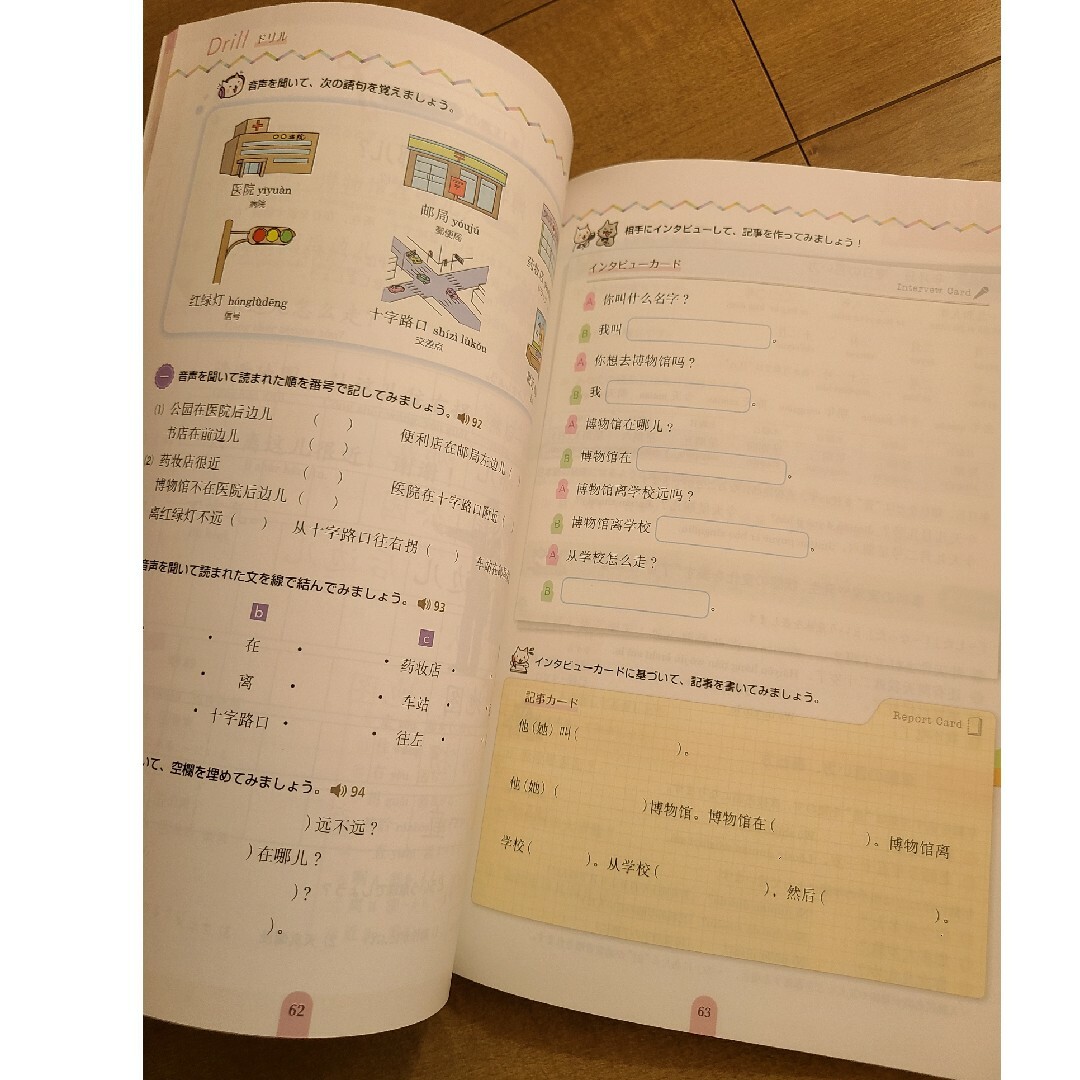 Drill ドリル
音声を聞いて、次の語句を覚えましょう。
医院 yīyuàn
病院
邮局 yóujú
郵便局
红绿灯 hónglǜdēng
信号
十字路口 shízì lùkǒu
交差点
一 音声を聞いて読まれた順を番号で記してみましょう。 92
(1) 公园在医院后边儿 ( )
便利店在邮局左边儿 (
书店在前边儿 ( )
(2) 药妆店很近 ( )
医院在十字路口附近 (
博物馆不在医院后边儿 ( )
离红绿灯不远 ( )
从十字路口往右拐 ( )
音声を聞いて読まれた文を線で結んでみましょう。 93
b
c
在
药妆店
离
车站
十字路口
往左
いて、空欄を埋めてみましょう。 94
)远不远？
)在哪儿？
)？
)。
62
相手にインタビューして、記事を作ってみましょう！
インタビューカード
Interview Card
A 你叫什么名字？
B 我叫 。
A 你想去博物馆吗？
B 我 。
A 博物馆在哪儿？
B 博物馆在 。
A 博物馆离学校远吗？
B 博物馆离学校 。
A 从学校怎么走？
B 。
インタビューカードに基づいて、記事を書いてみましょう。
記事カード
Report Card
他(她)叫( )。
他(她)( )博物馆。博物馆在( )。博物馆离
学校( )。从学校( )，然后( )。
63